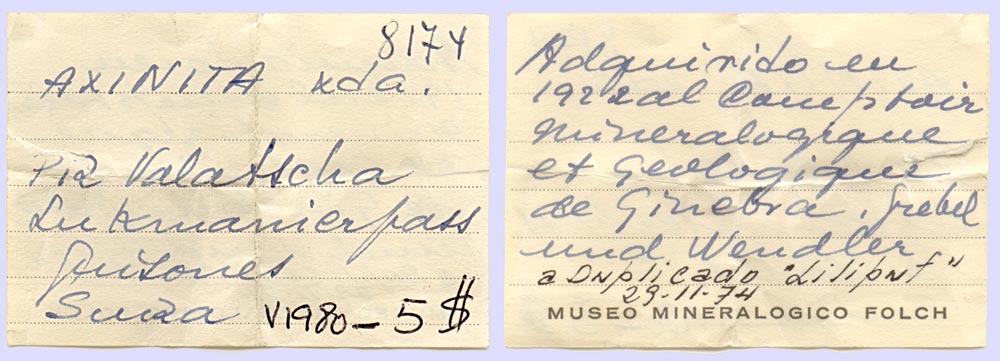 8174
AXINITA xda.
Piz Valatscha
Lukmanierpass
Grisones
Suiza V1980 - 5 $
Adquirido en
1922 al Comptoir
Mineralogique
et Geologique
de Ginebra. Grebel
und Wendler
a Duplicado "Liliput"
29-11-74
MUSEO MINERALOGICO FOLCH